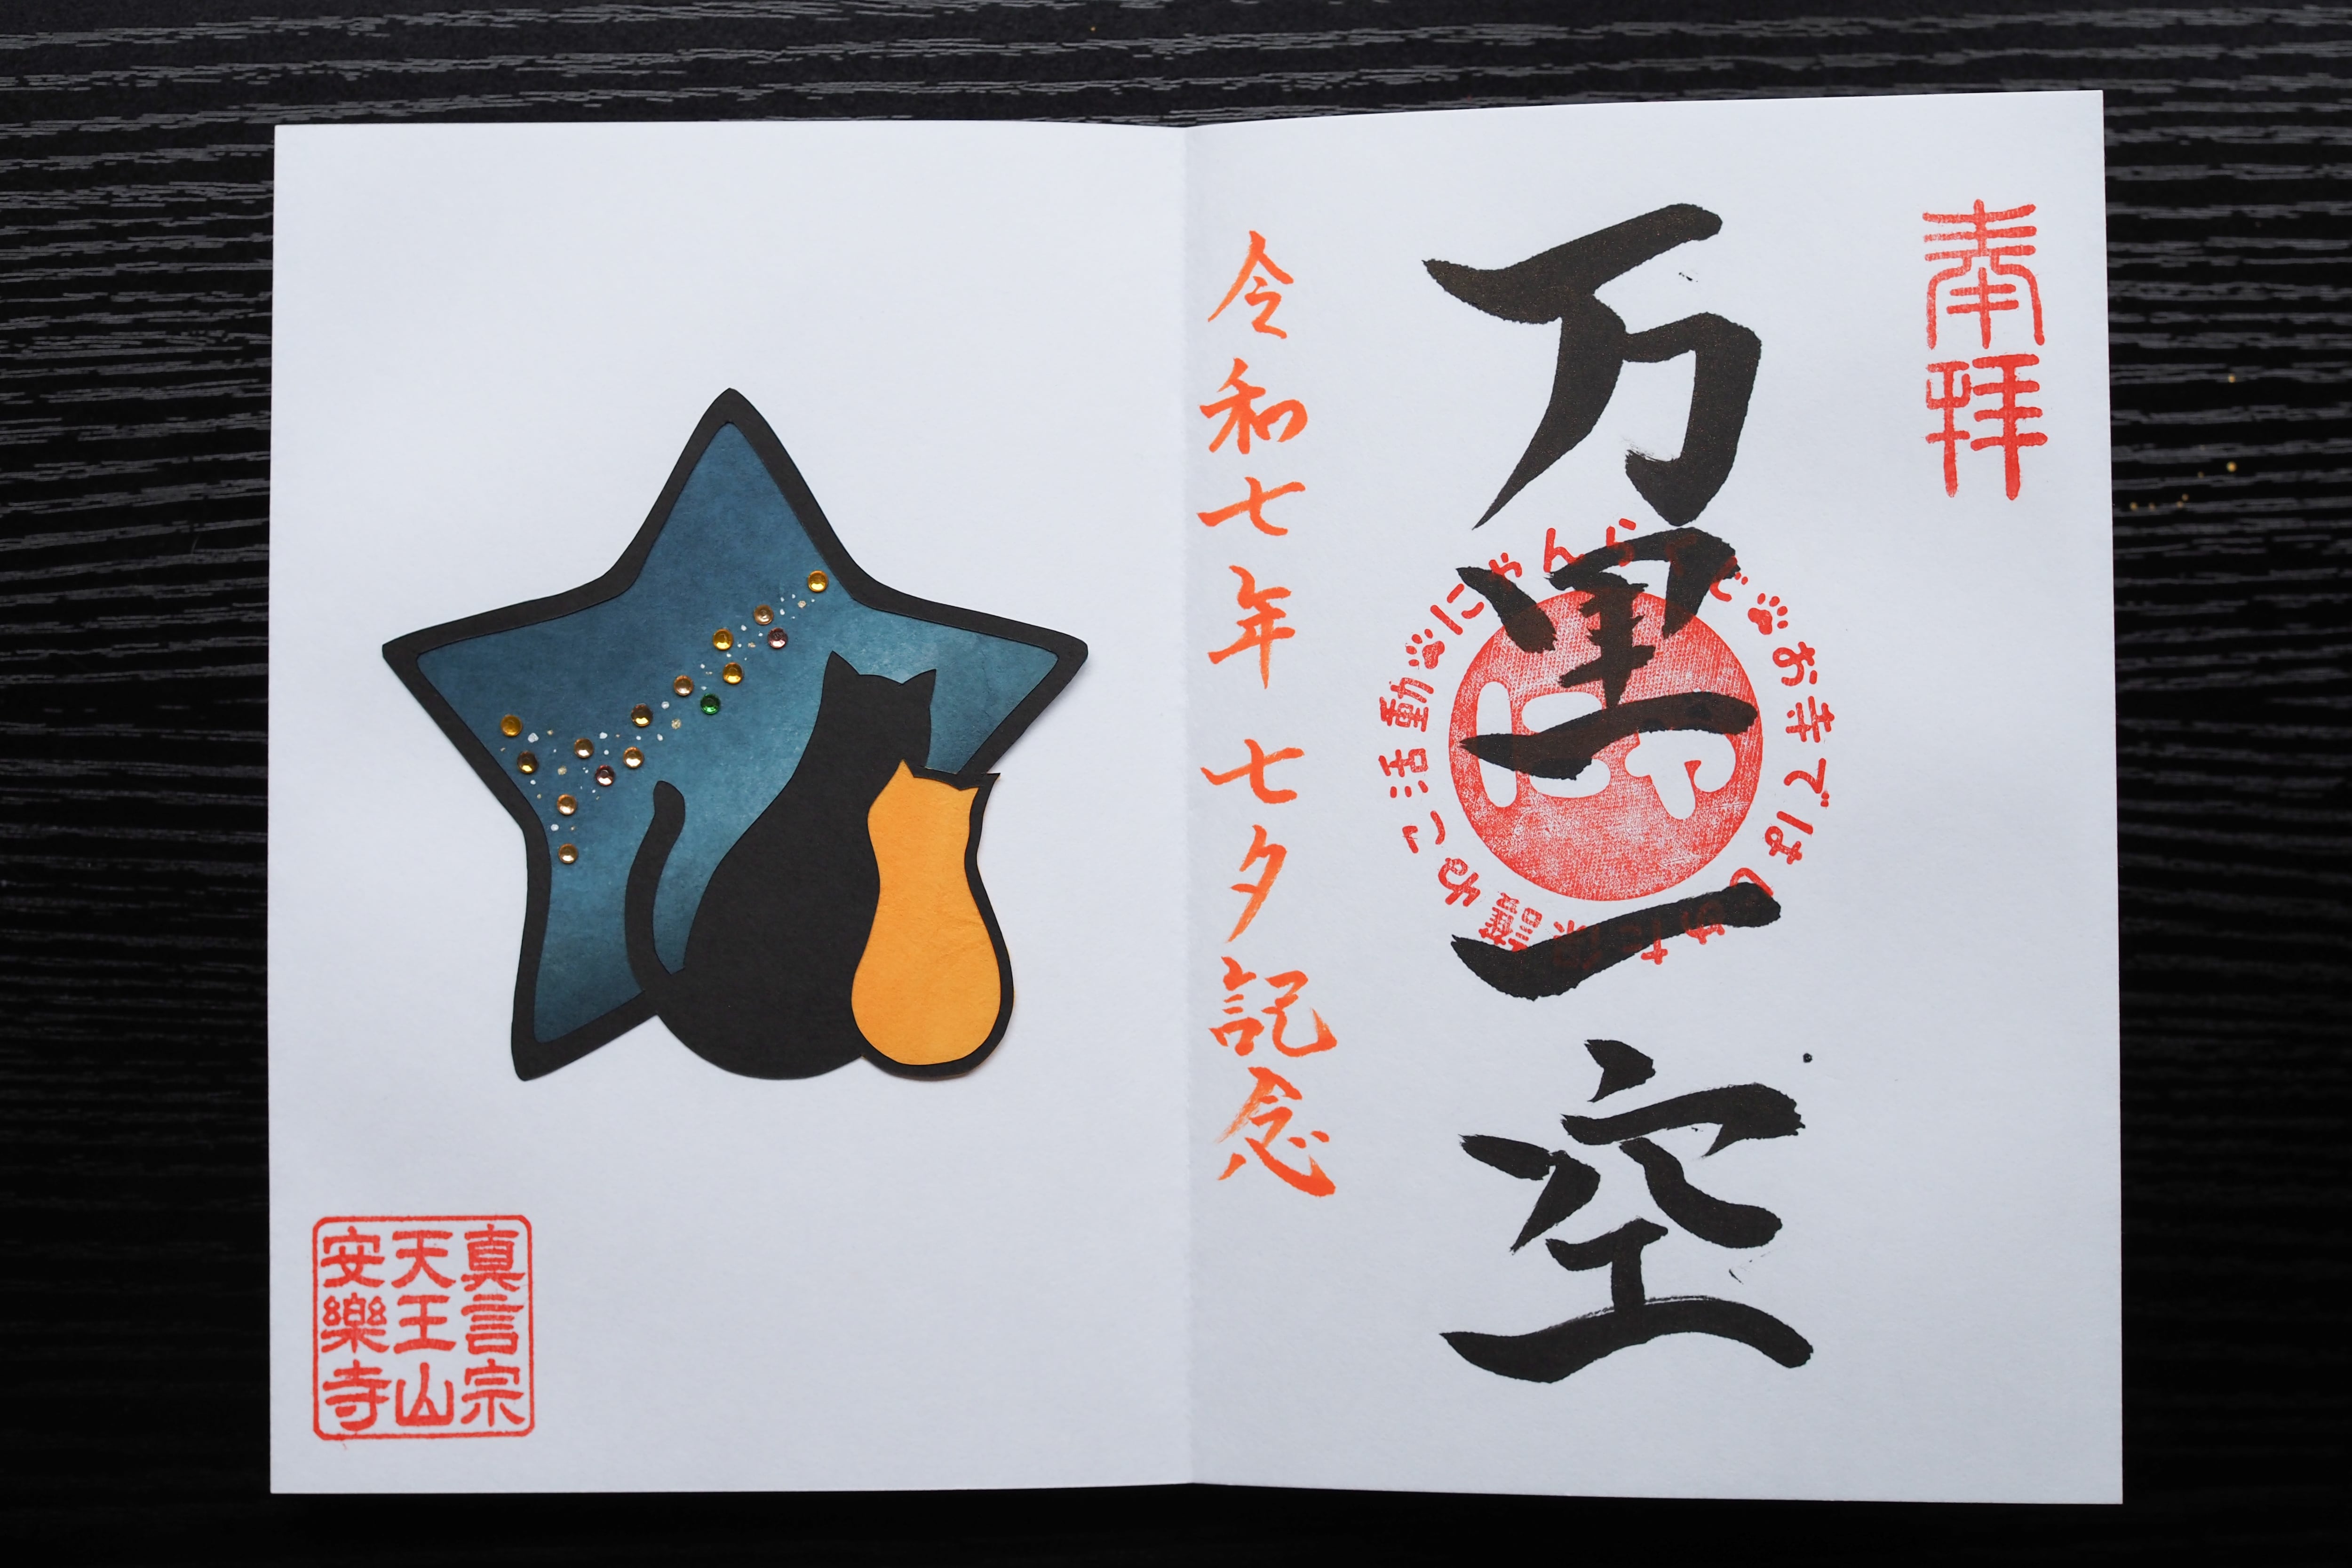 奉拝
万里一空
お寺ではじめた保護ねこ活動
令和七年 七夕記念
真言宗
天王山
安樂寺